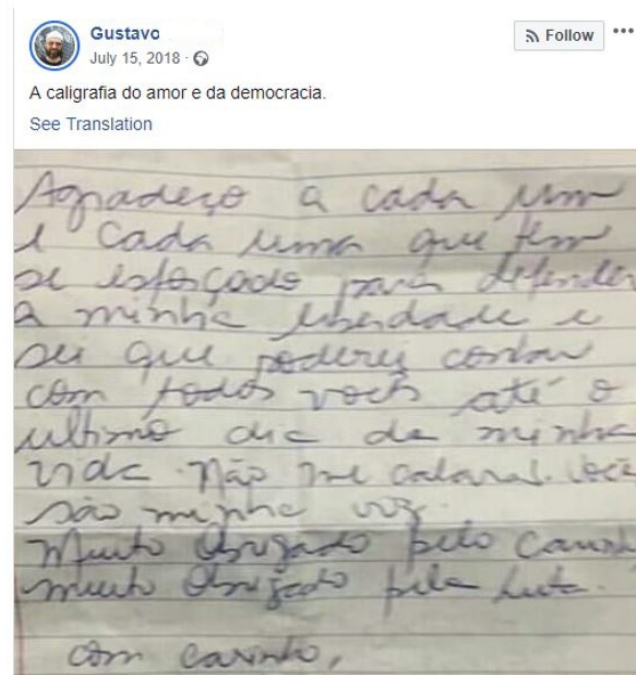 Gustavo
Follow
July 15, 2018
A caligrafia do amor e da democracia.
See Translation
Agradeço a cada um
e cada uma que tem
se esforçado para defender
a minha liberdade e
sei que poderei contar
com todos vocês até o
ultimo dia de minha
vida. Não me calarei. Você
são minha voz.
Muito Obrigado pelo carinh
muito Obrigado pela luta.
com carinho,